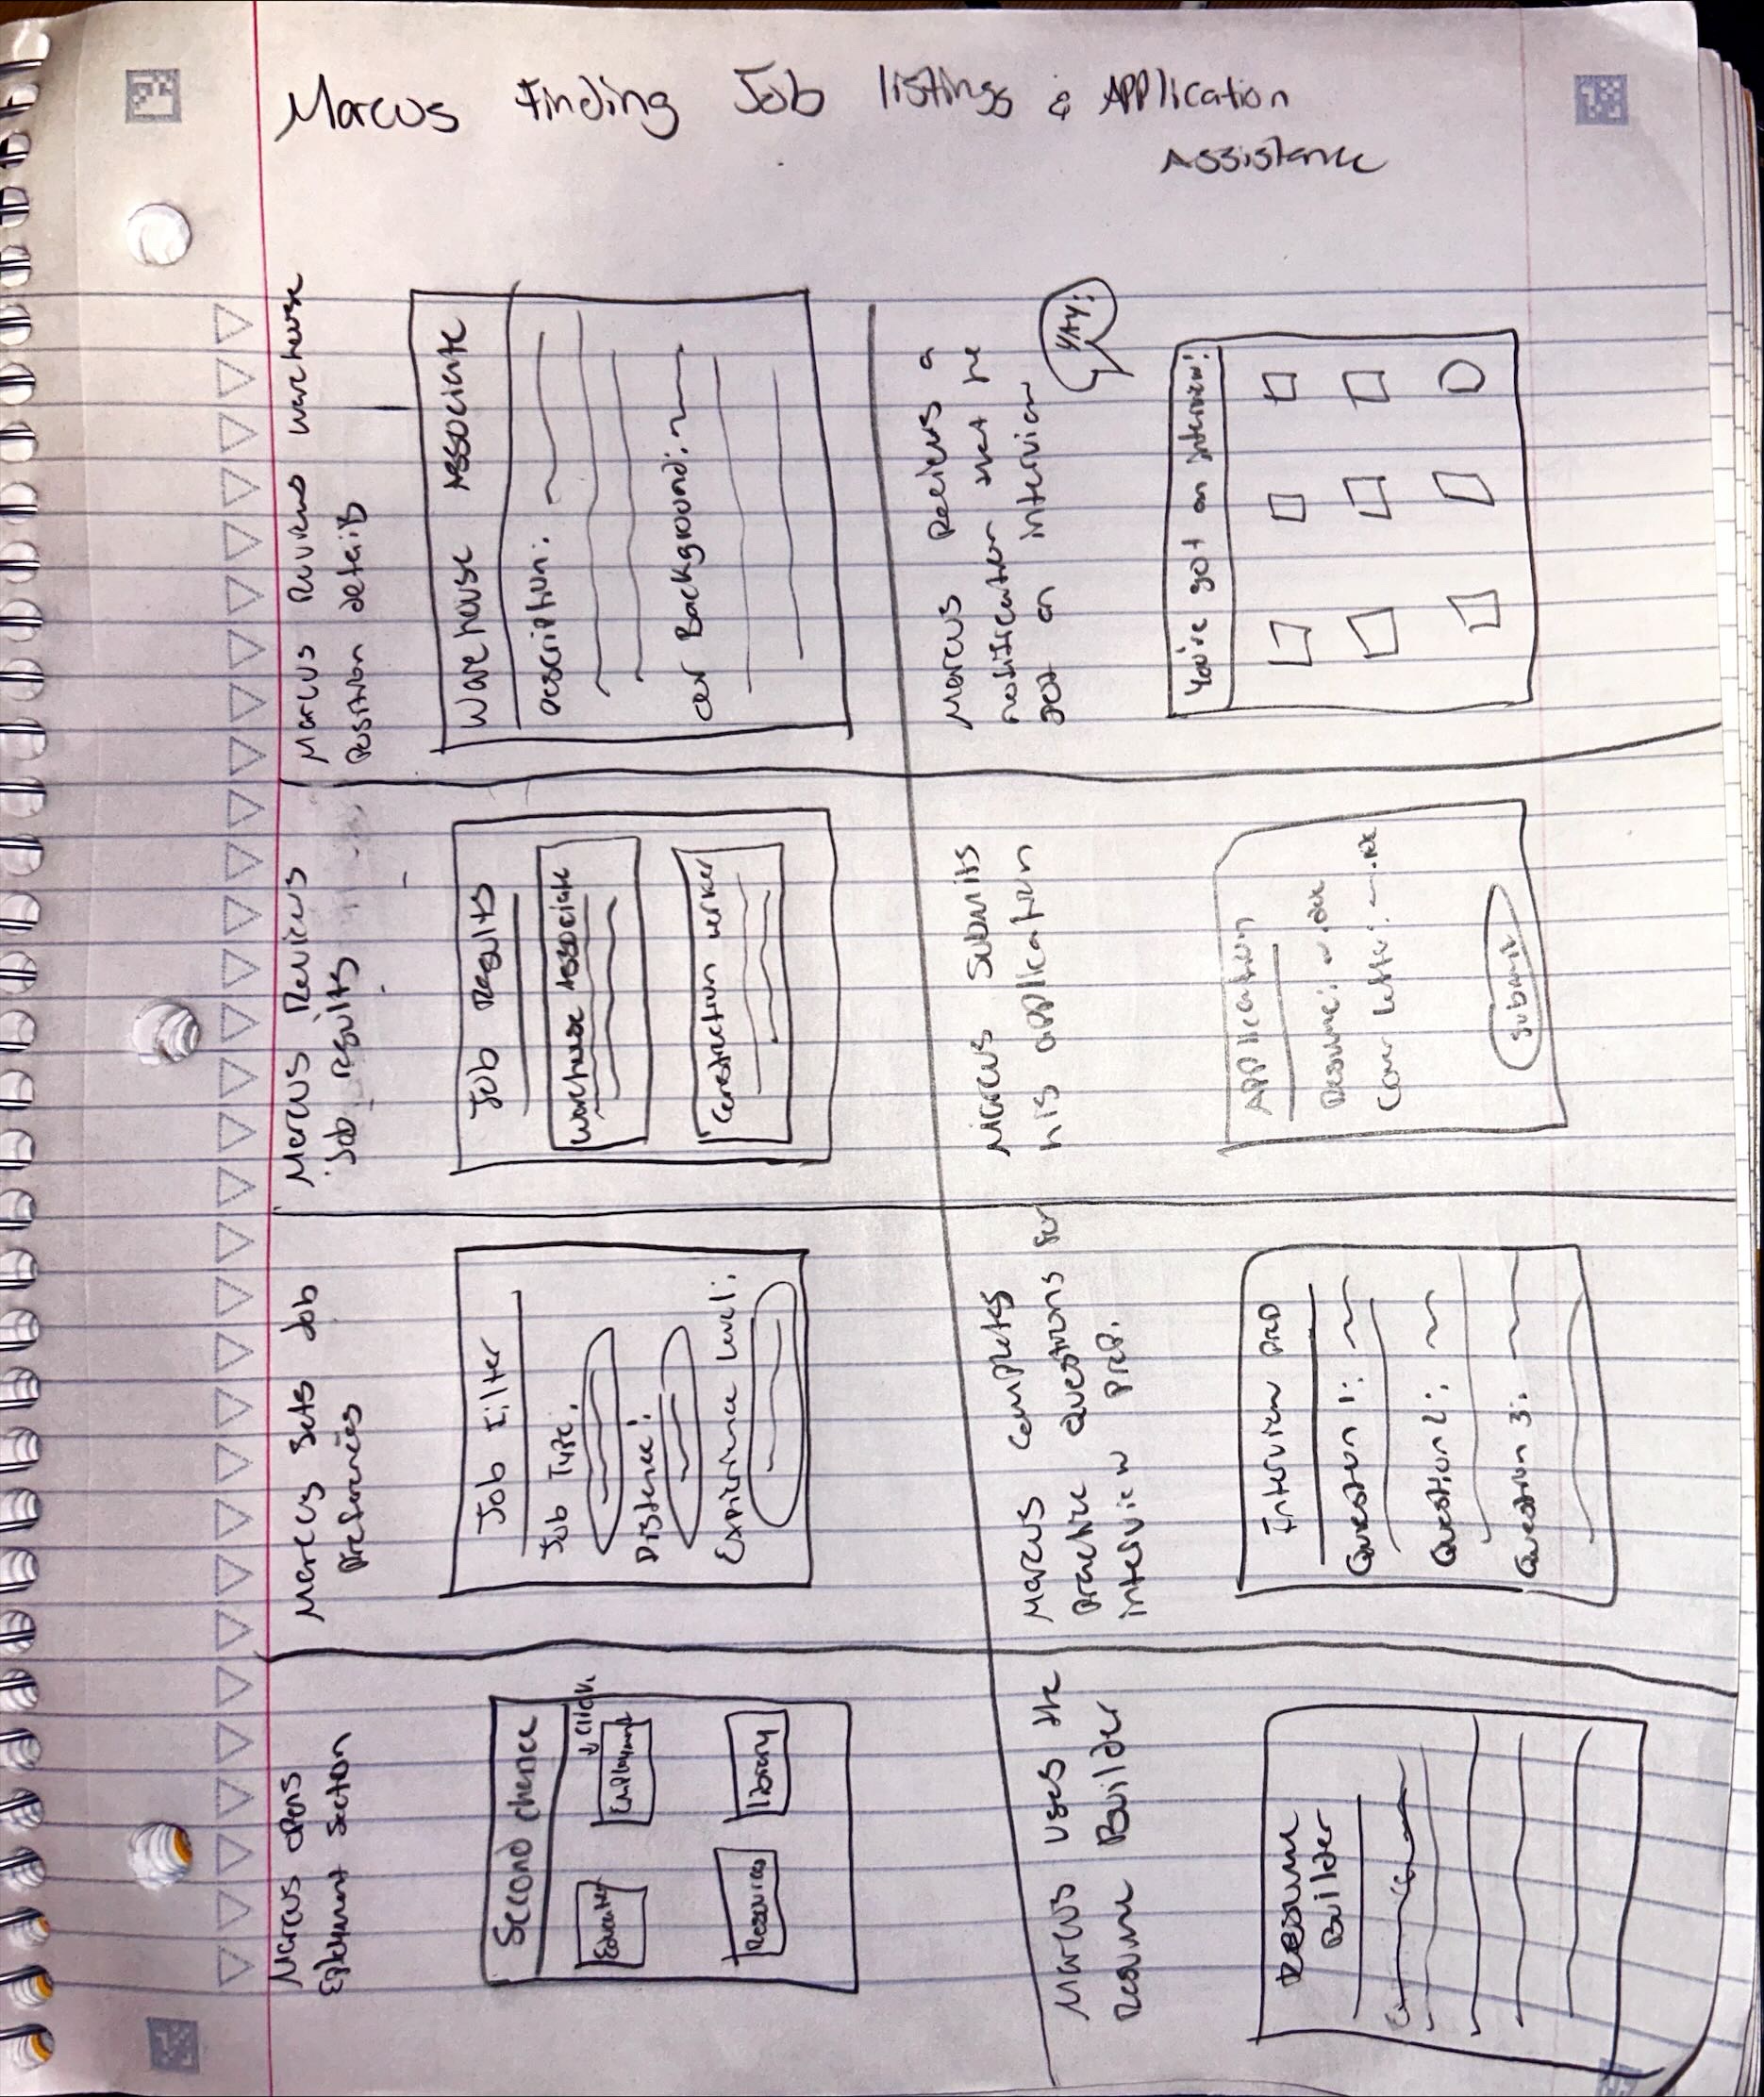 Marcus Finding Job listings & Application
Assistance
Marcus opens
Eployment Section
Second chance
↓ click
Education
Employment
Resources
library
Marcus Sets Job
Preferences
Job Filter
Job Type:
Distance:
Experience Level:
Marcus Reviews
job results
Job Results
Warehouse Associate
Construction worker
Marcus Reviews warehouse
Position details
Warehouse Associate
Description:
our Background:
Marcus uses the
Resume Builder
Resume
Builder
Marcus completes
practice questions for
interview prep.
Interview prep
Question 1:
Question 2:
Question 3:
Marcus Submits
his application
Application
Resume: .doc
Cover letter:
Submit
Marcus Recieves a
notification that he
got an interview
YAY!
You're got an interview!